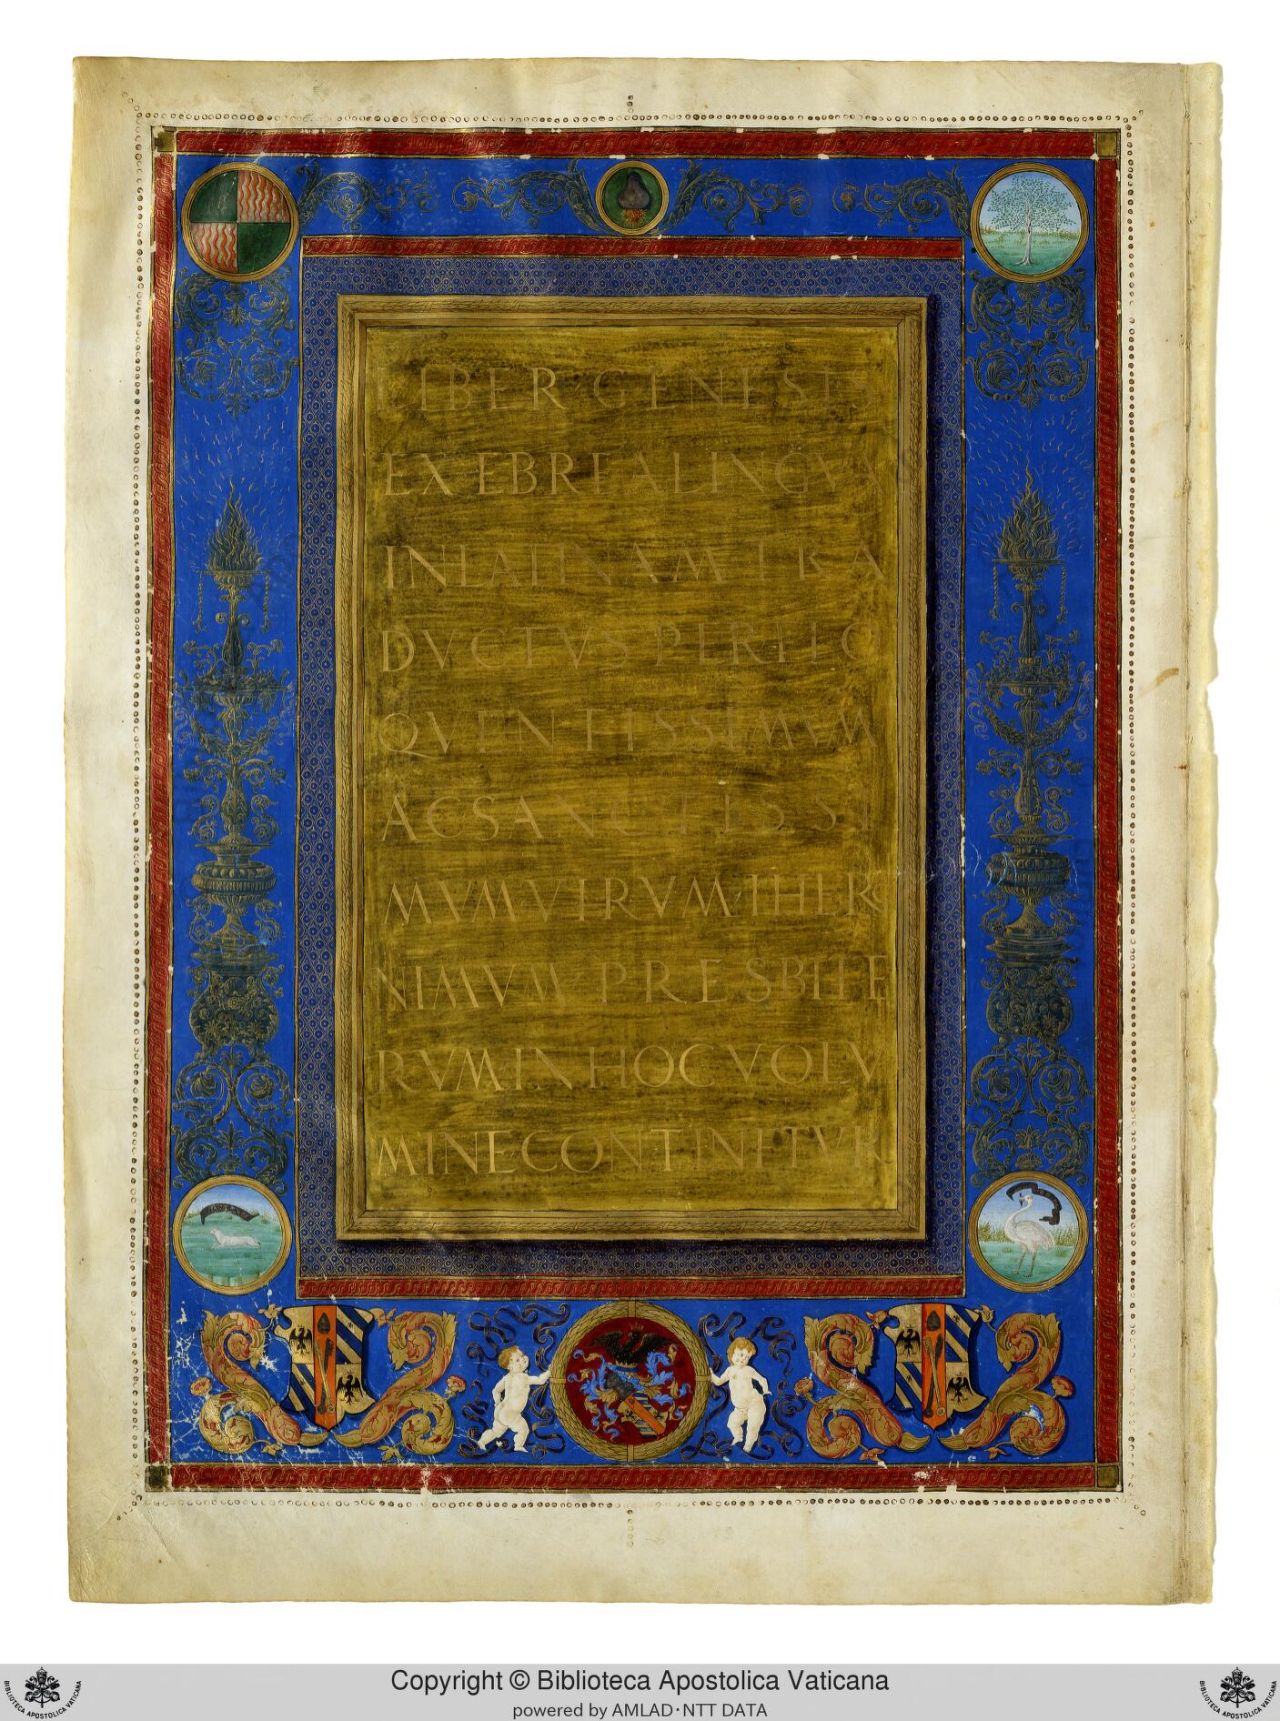 LIBER GENESIS
EX EBREA LINGVA
IN LATINAM TRA
DVCTVS PER ELO
QVENTISSIMVM
AC SANCTISSI
MVM VIRVM·IHERO
NIMVM PRESBITE
RVM·IN HOC VOLV
MINE CONTINETVR
Copyright © Biblioteca Apostolica Vaticana
powered by AMLAD·NTT DATA
BIBLIOTECA APOSTOLICA VATICANA
BIBLIOTECA APOSTOLICA VATICANA